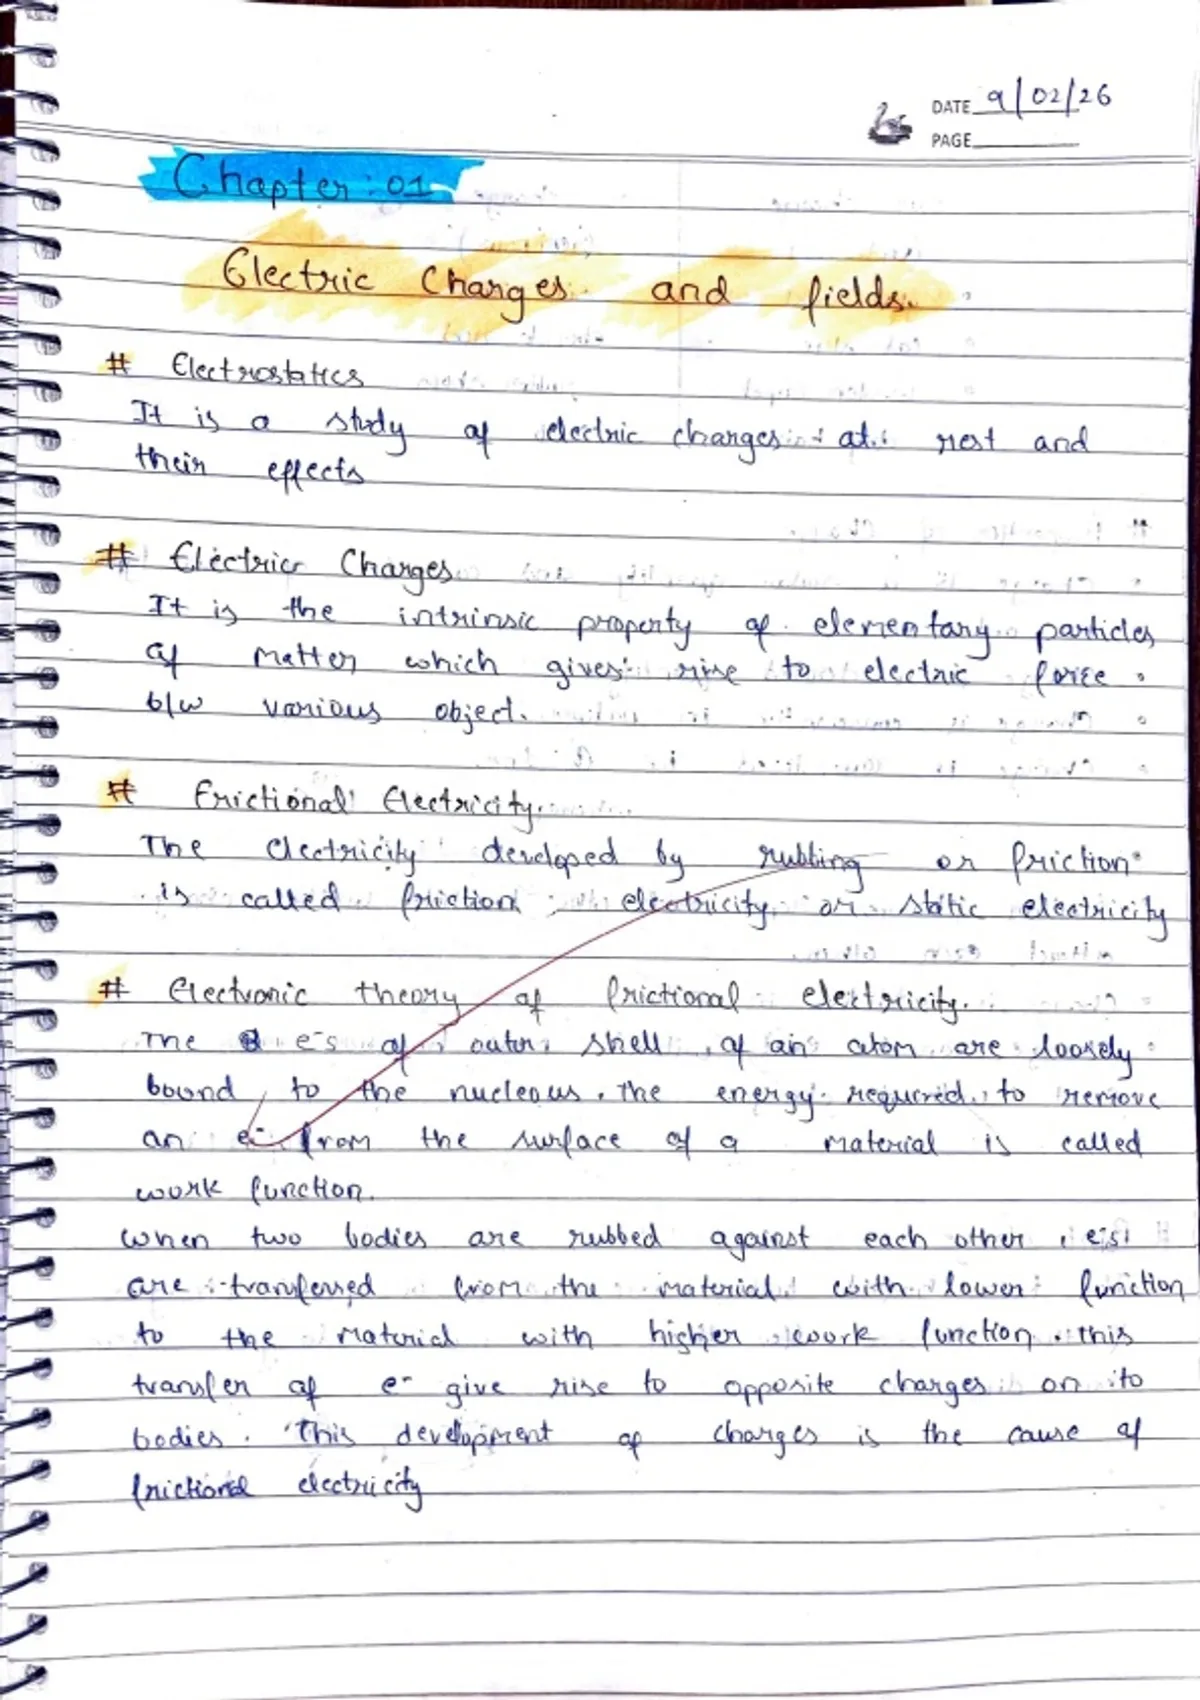 DATE 9/02/26
PAGE
Chapter : 01
Electric Charges and fields.
# Electrostatics
It is a study of electric charges at rest and
their effects
# Electric Charges
It is the intrinsic property of elementary particles
of matter which gives rise to electric force
b/w various object.
# Frictional Electricity
The electricity developed by rubbing or friction
is called friction electricity or static electricity
# Electronic theory of frictional electricity.
The e-s of outer shell of an atom are loosely
bound to the nucleous. The energy required to remove
an e- from the surface of a material is called
work function.
When two bodies are rubbed against each other, e-s
are transferred from the material with lower function
to the material with higher work function. this
transfer of e- give rise to opposite charges on to
bodies. This development of charges is the cause of
frictional electricity